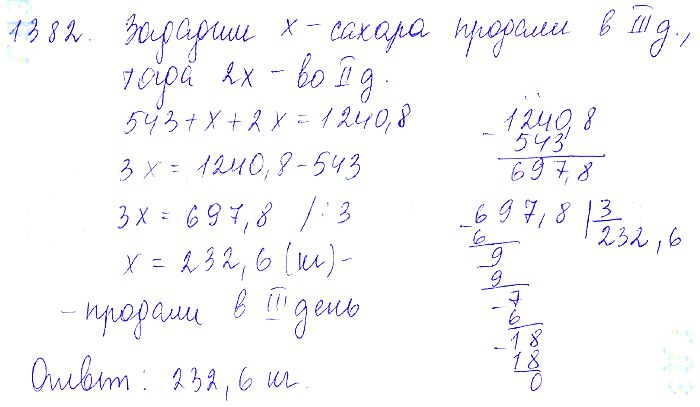 1382. Зададим x - сахара продали в III д.,
тогда 2x - во II д.
543 + x + 2x = 1240,8
3x = 1240,8 - 543
3x = 697,8 / : 3
x = 232,6 (кг) -
- продали в III день
Ответ: 232,6 кг.
- 1240,8
543
697,8
- 697,8 | 3
6 232,6
- 9
9
- 7
6
- 18
18
0